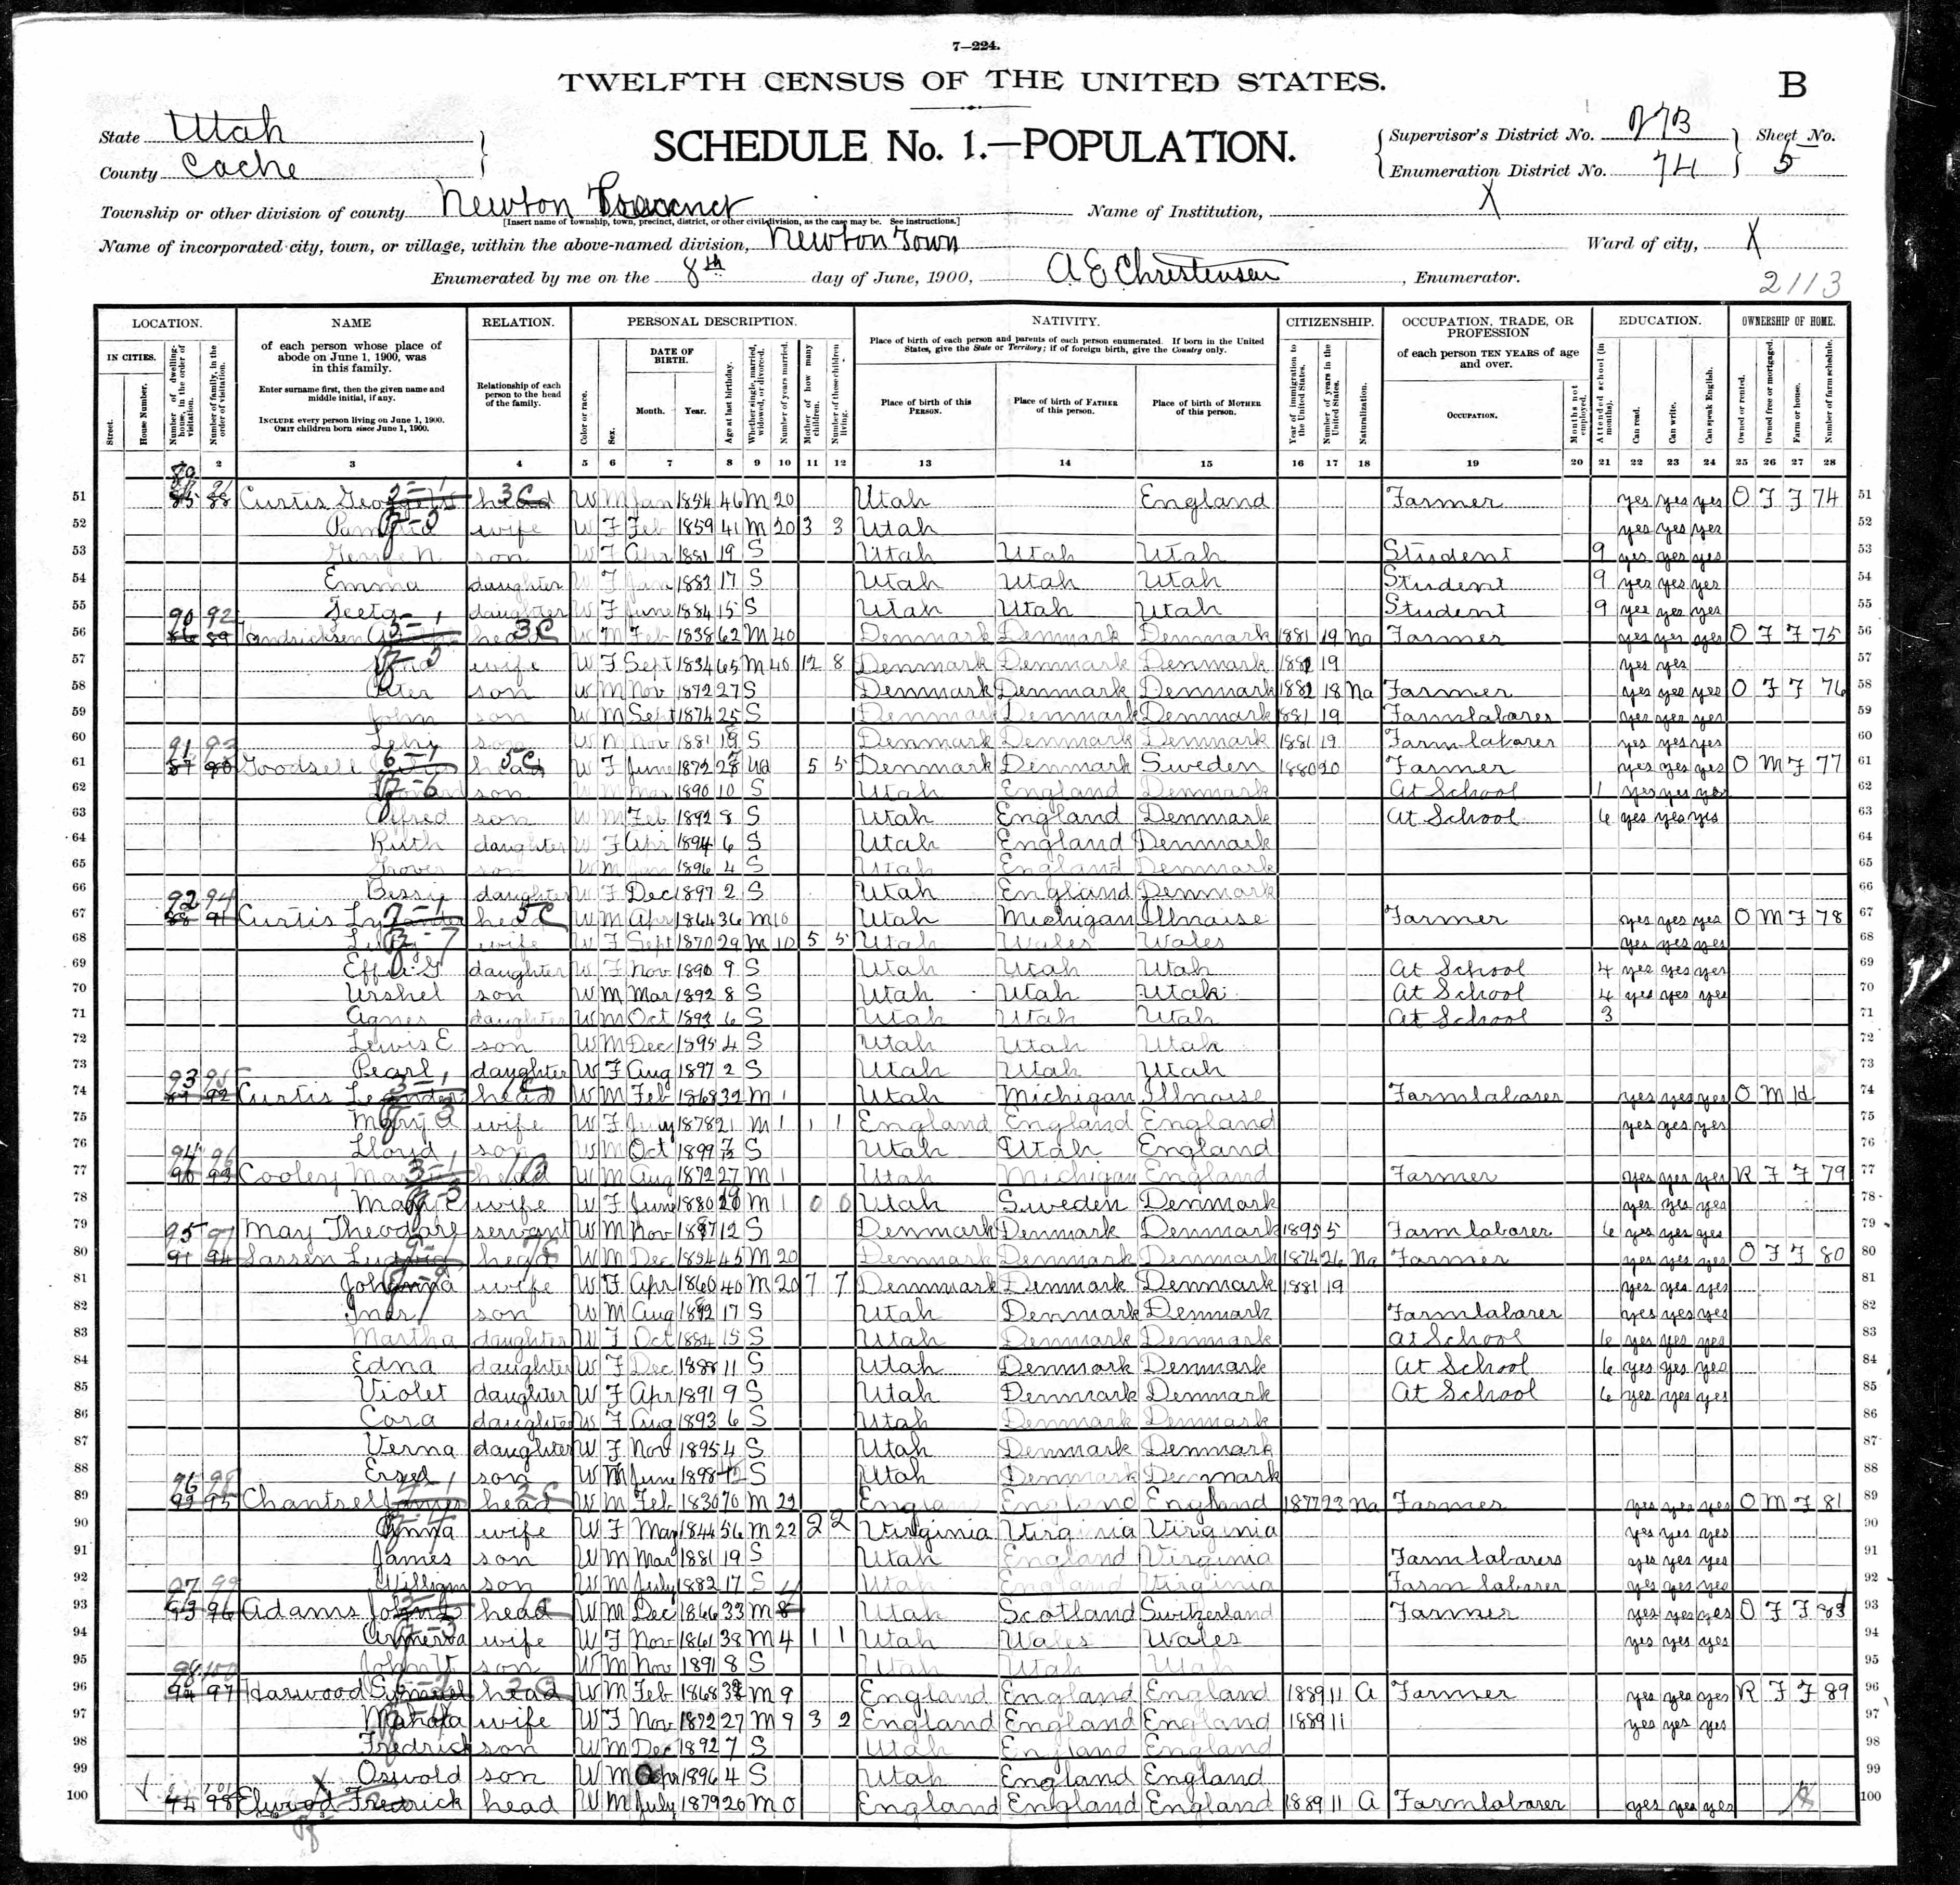 7—224.
TWELFTH CENSUS OF THE UNITED STATES.
B
State Utah
SCHEDULE No. 1.—POPULATION.
Supervisor's District No.
Sheet No.
County Cache
Enumeration District No. 74
5
Township or other division of county Newton Precinct
Name of Institution, X
[Insert name of township, town, precinct, district, or other civil division, as the case may be. See instructions.]
Name of incorporated city, town, or village, within the above-named division, Newton Town
Ward of city, X
Enumerated by me on the 8th day of June, 1900, A E Christensen, Enumerator.
2113
LOCATION. NAME RELATION. PERSONAL DESCRIPTION. NATIVITY. CITIZENSHIP. OCCUPATION, TRADE, OR PROFESSION EDUCATION. OWNERSHIP OF HOME.
IN CITIES.
Street.
House Number.
Number of dwelling-house, in the order of visitation.
Number of family, in the order of visitation.
of each person whose place of abode on June 1, 1900, was in this family.
Enter surname first, then the given name and middle initial, if any.
INCLUDE every person living on June 1, 1900.
OMIT children born since June 1, 1900.
Relationship of each person to the head of the family.
Color or race.
Sex.
DATE OF BIRTH.
Month.
Year.
Age at last birthday.
Whether single, married, widowed, or divorced.
Number of years married.
Mother of how many children.
Number of these children living.
Place of birth of each person and parents of each person enumerated. If born in the United States, give the State or Territory; if of foreign birth, give the Country only.
Place of birth of this PERSON.
Place of birth of FATHER of this person.
Place of birth of MOTHER of this person.
Year of immigration to the United States.
Number of years in the United States.
Naturalization.
of each person TEN YEARS of age and over.
OCCUPATION.
Months not employed.
Attended school (in months).
Can read.
Can write.
Can speak English.
Owned or rented.
Owned free or mortgaged.
Farm or house.
Number of farm schedule.
2 3 4 5 6 7 8 9 10 11 12 13 14 15 16 17 18 19 20 21 22 23 24 25 26 27 28
51 85 88 Curtis head W M Jan 1854 46 M 20 Utah England Farmer yes yes yes O F F 74 51
52 wife W F Feb 1859 41 M 20 3 3 Utah yes yes yes 52
53 son W F Apr 1881 19 S Utah Utah Utah Student 9 yes yes yes 53
54 Emma daughter W F Jan 1883 17 S Utah Utah Utah Student 9 yes yes yes 54
55 daughter W F June 1884 15 S Utah Utah Utah Student 9 yes yes yes 55
90 92
56 head W M Feb 1838 62 M 40 Denmark Denmark Denmark 1881 19 Na Farmer yes yes yes O F F 75 56
57 wife W F Sept 1834 65 M 40 12 8 Denmark Denmark Denmark 19 yes yes 57
58 son W M Nov 1872 27 S Denmark Denmark Denmark 1882 18 Na Farmer yes yes yes O F F 76 58
59 John son W M Sept 1874 25 S Denmark Denmark Denmark 1881 19 Farm laborer yes yes yes 59
60 son W M Nov 1881 S Denmark Denmark Denmark 1881 19 Farm laborer yes yes yes 60
91 93
61 Goodsell head W F June 1872 Wd 5 5 Denmark Denmark Sweden 1880 20 Farmer yes yes yes O M F 77 61
62 son W M Mar 1890 10 S Utah England Denmark At School 1 yes yes yes 62
63 Alfred son W M Feb 1892 8 S Utah England Denmark At School 6 yes yes yes 63
64 Ruth daughter W F Apr 1894 6 S Utah England Denmark 64
65 Grover son W M 1896 4 S Utah England Denmark 65
66 Bessy daughter W F Dec 1897 2 S Utah England Denmark 66
92 94
67 88 91 Curtis head W M Apr 1864 36 M 10 Utah Michigan Illnoise Farmer yes yes yes O M F 78 67
68 wife W F Sept 1870 29 M 10 5 5 Utah Wales Wales yes yes yes 68
69 Effie G daughter W F Nov 1890 9 S Utah Utah Utah At School 4 yes yes yes 69
70 Urshel son W M Mar 1892 8 S Utah Utah Utah At School 4 yes yes yes 70
71 Agnes daughter W M Oct 1893 6 S Utah Utah Utah At School 3 71
72 Lewis E son W M Dec 1895 4 S Utah Utah Utah 72
73 Pearl daughter W F Aug 1897 2 S Utah Utah Utah 73
93 95
74 92 Curtis head W M Feb 1868 32 M 1 Utah Michigan Illnoise Farm laborer yes yes yes O M H 74
75 Mary A wife W F July 1878 21 M 1 1 1 England England England yes yes yes 75
76 Lloyd son W M Oct 1899 S Utah Utah England 76
94 96
77 90 93 Cooley head W M Aug 1872 27 M 1 Utah Michigan England Farmer yes yes yes R F F 79 77
78 Mary E wife W F June 1880 M 1 0 0 Utah Sweden Denmark yes yes yes 78
79 May Theodore servant W M Nov 1887 12 S Denmark Denmark Denmark 1895 5 Farm laborer 6 yes yes yes 79
95 97
80 91 94 Larsen Ludvig head W M Dec 1854 45 M 20 Denmark Denmark Denmark 1874 26 Na Farmer yes yes yes O F F 80 80
81 Johanna wife W F Apr 1860 40 M 20 7 7 Denmark Denmark Denmark 1881 19 yes yes yes 81
82 son W M Aug 1882 17 S Utah Denmark Denmark Farm laborer yes yes yes 82
83 Martha daughter W F Oct 1884 15 S Utah Denmark Denmark At School 6 yes yes yes 83
84 Edna daughter W F Dec 1888 11 S Utah Denmark Denmark At School 6 yes yes yes 84
85 Violet daughter W F Apr 1891 9 S Utah Denmark Denmark At School 6 yes yes yes 85
86 Cora daughter W F Aug 1893 6 S Utah Denmark Denmark 86
87 Verna daughter W F Nov 1895 4 S Utah Denmark Denmark 87
88 son W M June 1898 S Utah Denmark Denmark 88
96 98
89 95 Chantrell James head W M Feb 1830 70 M 22 England England England 1877 23 Na Farmer yes yes yes O M F 81 89
90 Anna wife W F May 1844 56 M 22 2 2 Virginia Virginia Virginia yes yes yes 90
91 James son W M Mar 1881 19 S Utah England Virginia Farm laborers yes yes yes 91
92 William son W M July 1882 17 S Utah England Virginia Farm laborer yes yes yes 92
97 99
93 93 96 Adams head W M Dec 1866 33 M Utah Scotland Switzerland Farmer yes yes yes O F F 83 93
94 wife W F Nov 1861 38 M 4 1 1 Utah Wales Wales yes yes yes 94
95 son W M Nov 1891 8 S Utah Utah Utah 95
98 100
96 94 97 Harwood Samuel head W M Feb 1868 M 9 England England England 1889 11 A Farmer yes yes yes R F F 89 96
97 wife W F Nov 1872 27 M 9 3 2 England England England 1889 11 yes yes yes 97
98 Fredrick son W M Dec 1892 7 S Utah England England 98
99 Oswold son W M Apr 1896 4 S Utah England England 99
100 98 Elwood Fredrick head W M July 1879 20 M 0 England England England 1889 11 A Farm laborer yes yes yes 100